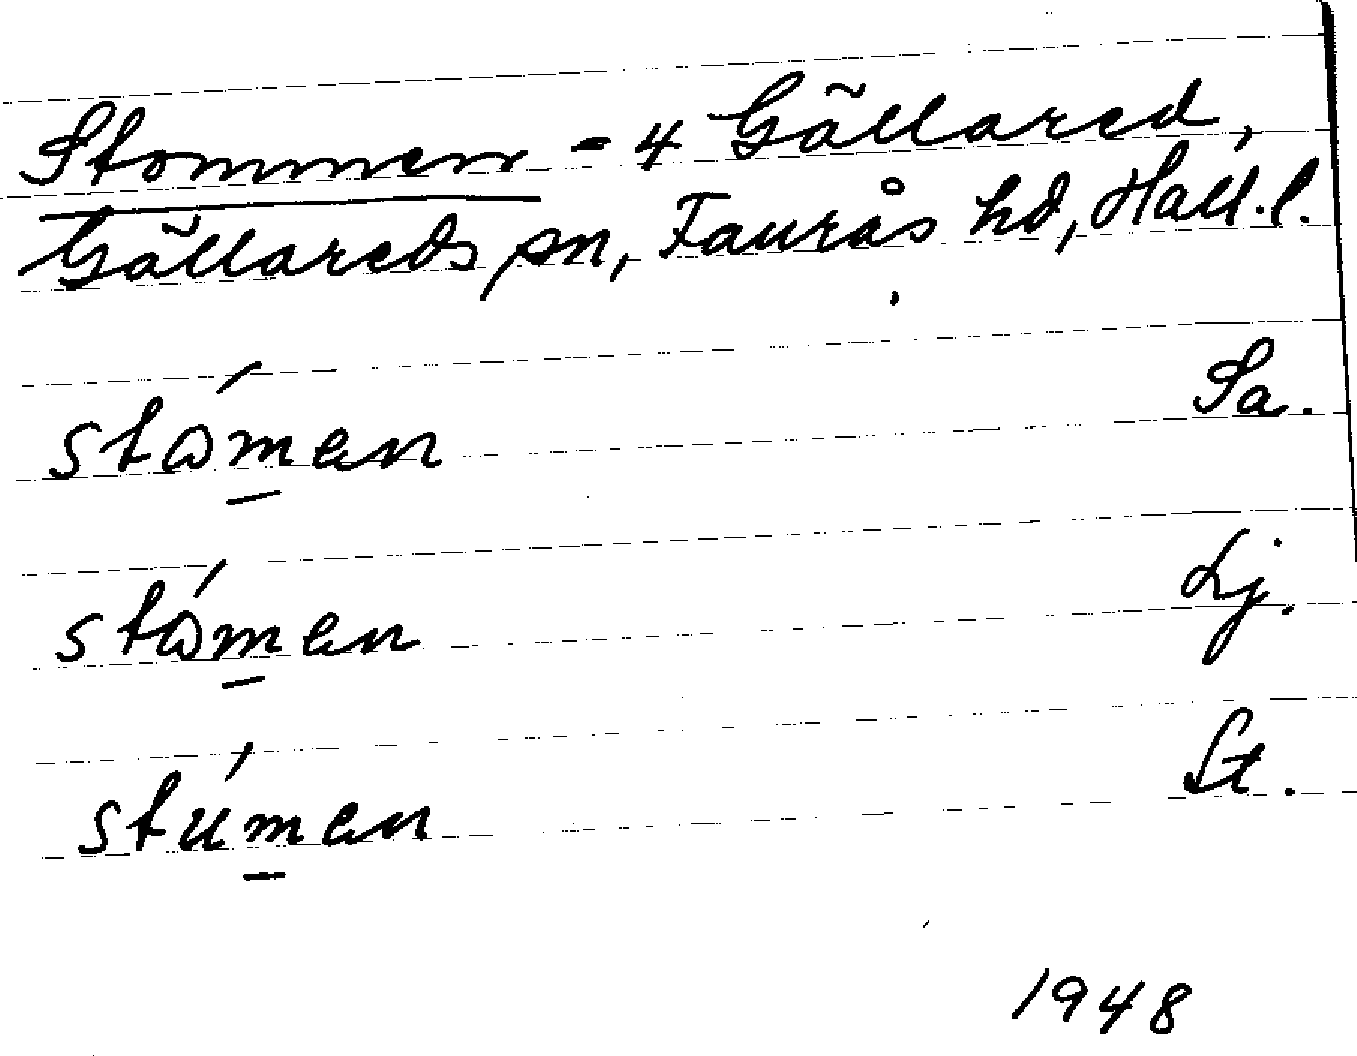 Stommen = 4 Gällared,
Gällareds sn, Faurås hd, Hall.l.
stɷ́m̲en Sa.
stɷ́m̲en Lj.
stúm̲en St.
1948